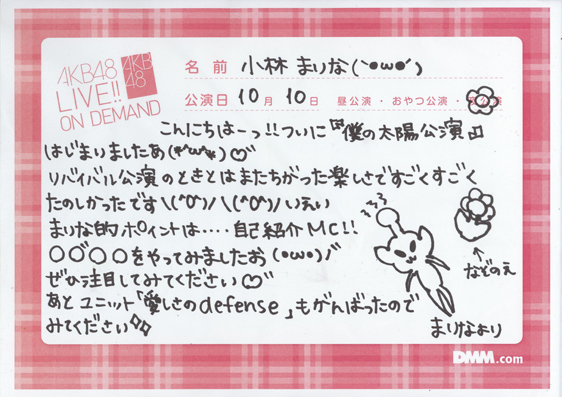 AKB48
LIVE!!
ON DEMAND
AKB
48
名 前 小林 まりな(`•ω•´)
公演日 10月 10日 昼公演・おやつ公演・夜公演
こんにちはーっ!!ついに『僕の太陽公演』
はじまりましたあ(*^ω^*)♡
リバイバル公演のときとはまたちがった楽しさですごくすごく
たのしかったです\(^O^)/\(^O^)/いえい
まりな的ポイントは‥‥自己紹介MC!!
○○゛○○をやってみましたお(•ω•)ﾉ゛
ぜひ注目してみてください♡
あとユニット「愛しさのdefense」もがんばったので
みてください
↑
などのえ
まりなより
DMM.com